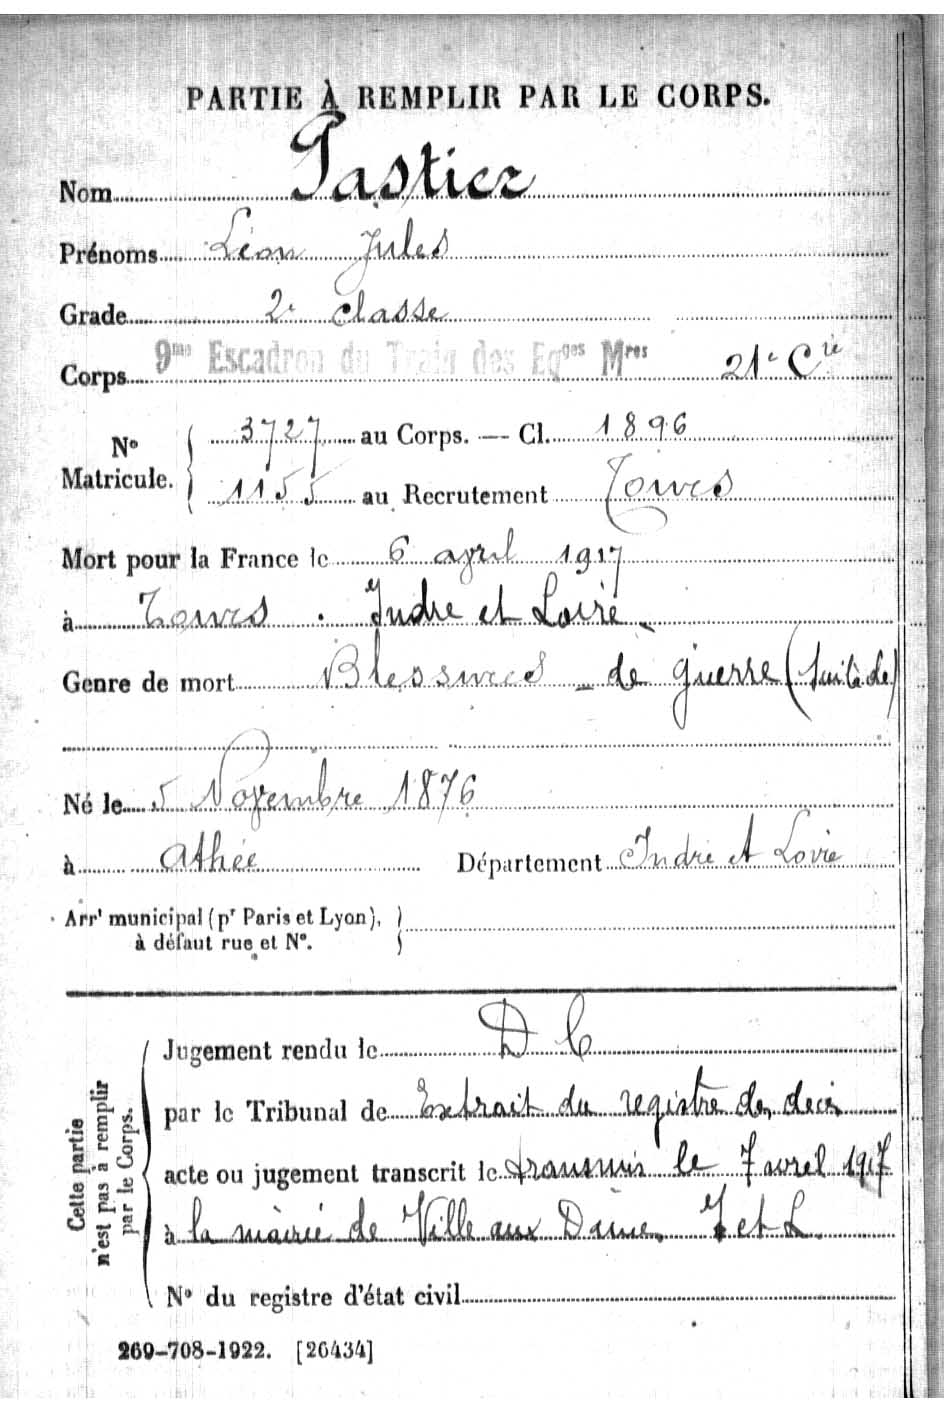 PARTIE À REMPLIR PAR LE CORPS.
Nom Pastier
Prénoms Léon Jules
Grade 2e classe
Corps 9me Escadron du Train des Eqges Mres 21e Cie
No Matricule. 3727 au Corps. — Cl. 1896
1155 au Recrutement Tours
Mort pour la France le 6 avril 1917
à Tours . Indre et Loire
Genre de mort Blessures de guerre (suite de)
Né le 5 Novembre 1876
à Athée Département Indre et Loire
Arrt municipal (pr Paris et Lyon),
à défaut rue et No.
Cette partie
n'est pas à remplir
par le Corps.
Jugement rendu le D C
par le Tribunal de Extrait du registre des décès
acte ou jugement transcrit le transmis le 7 avril 1917
à la mairie de Ville aux Dames I et L.
No du registre d'état civil
269-708-1922. [26434]